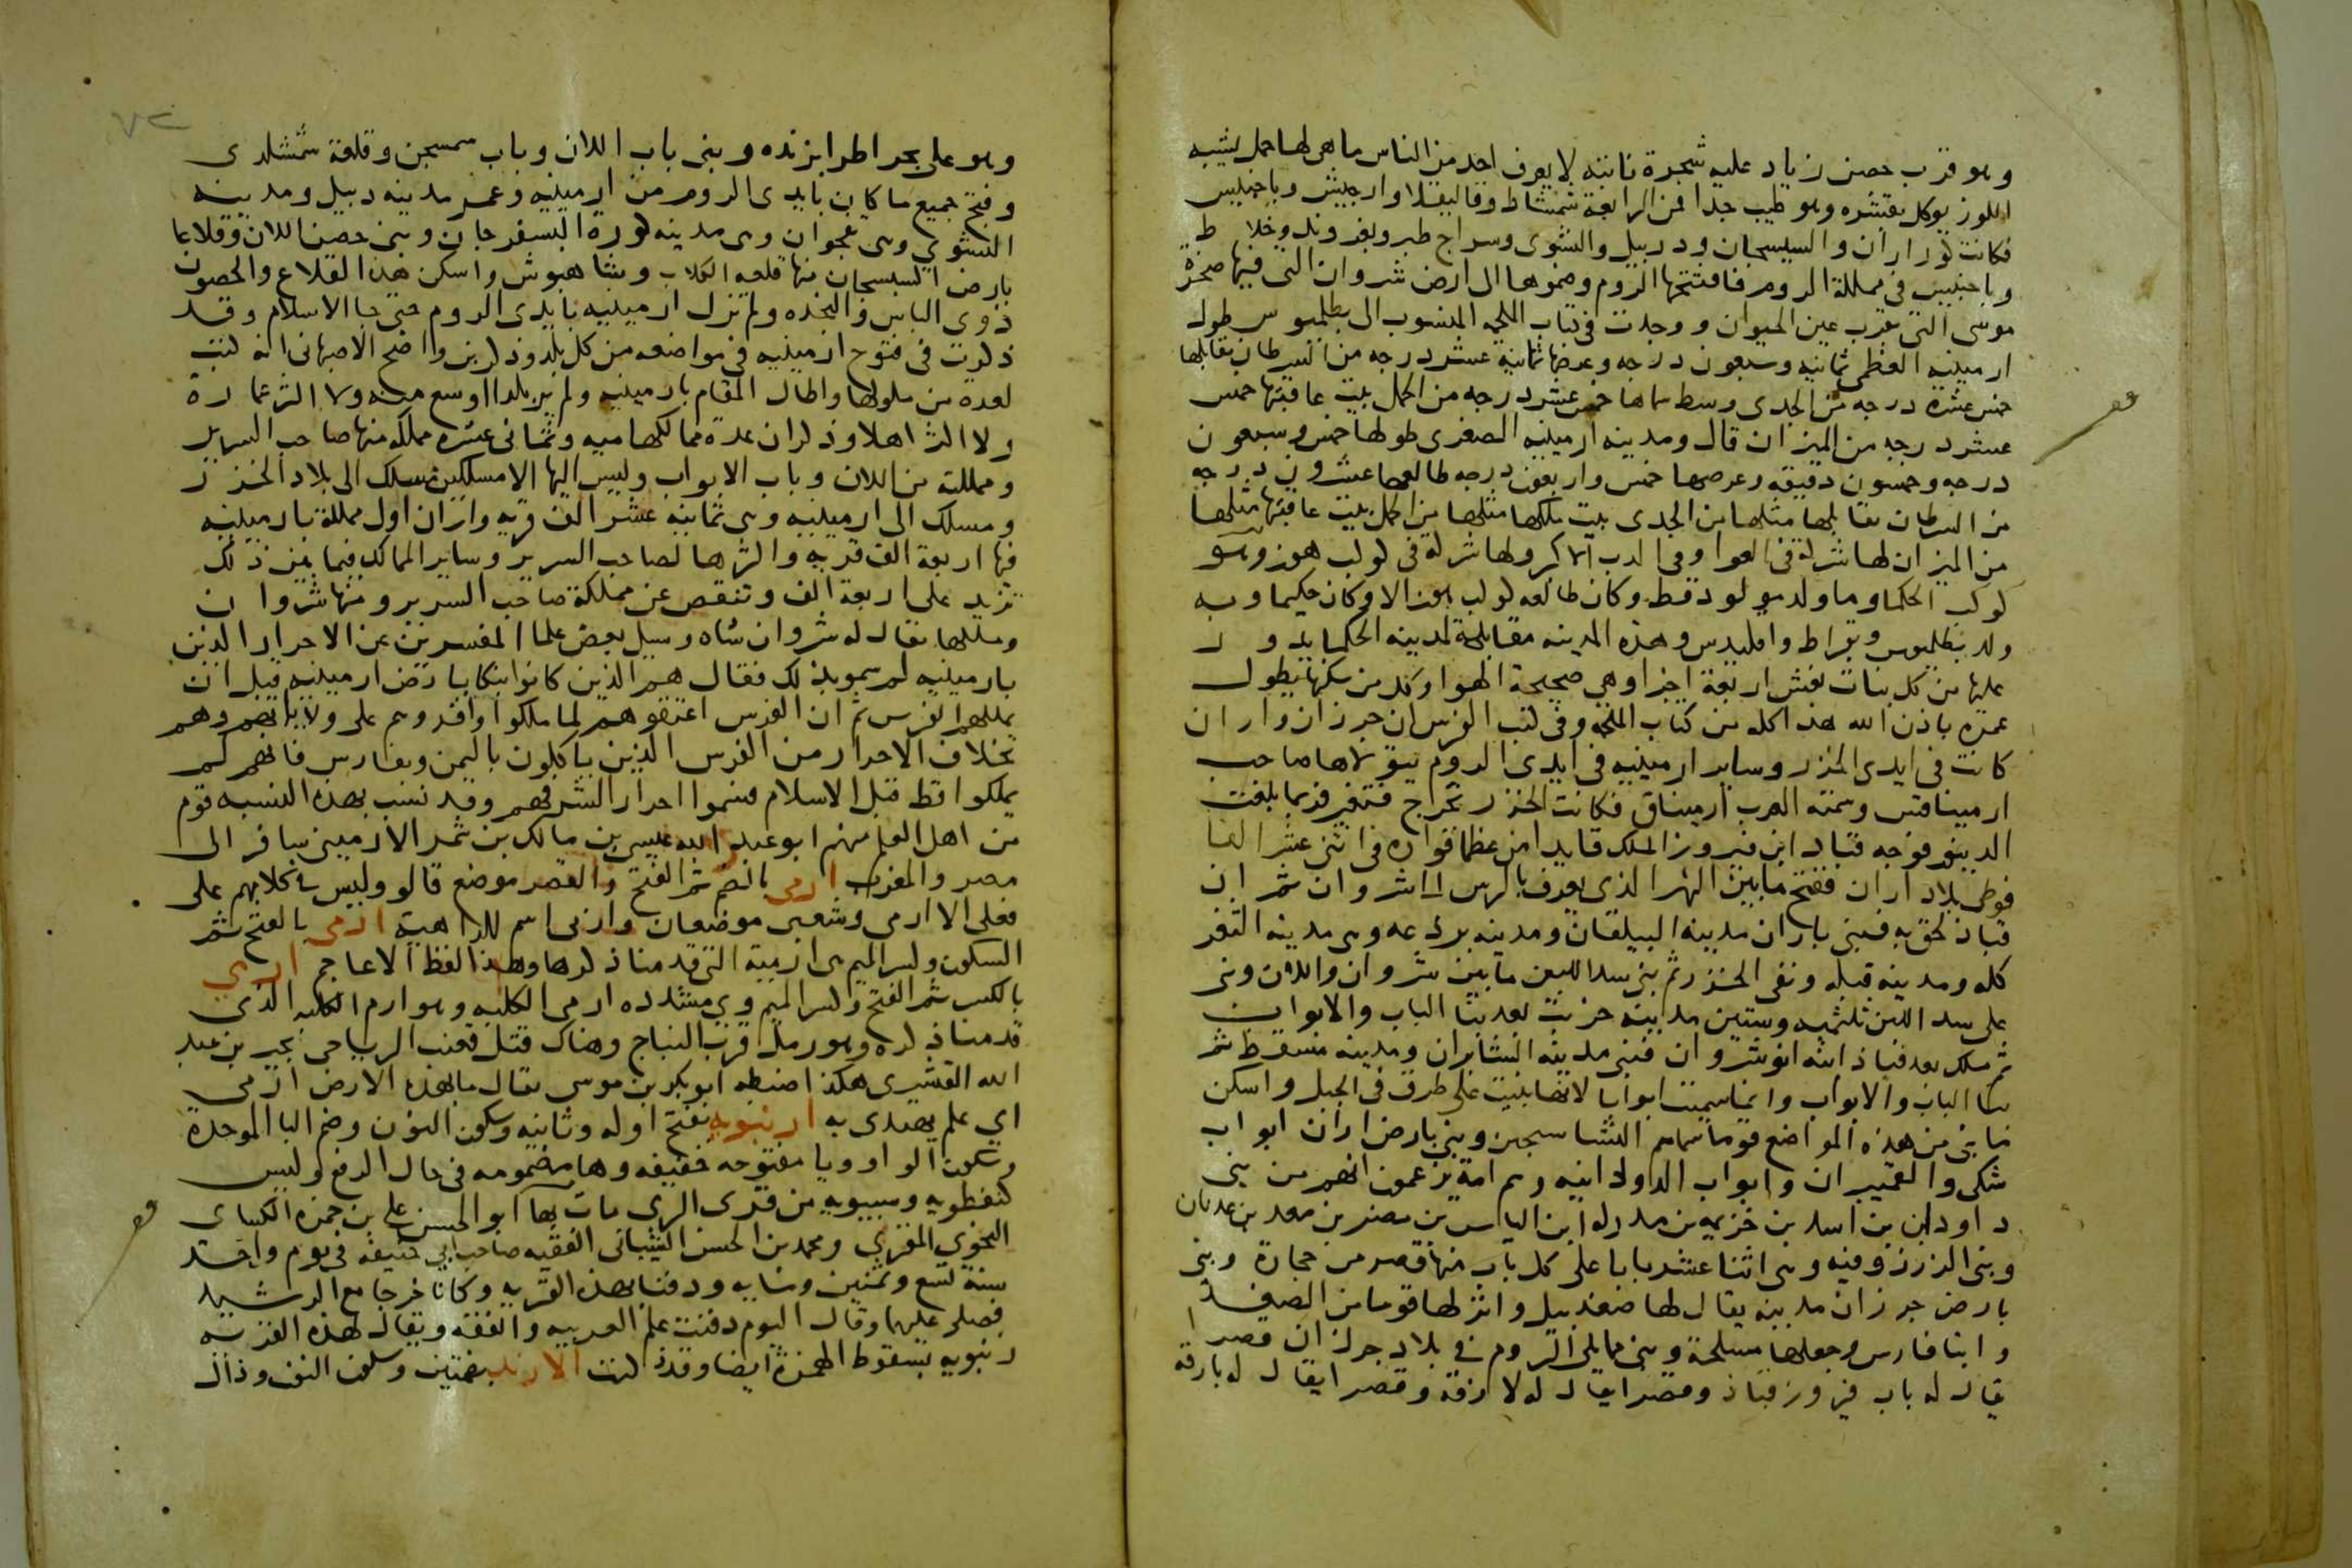 وهو قرب حصن زياد عليه شجرة نابتة لا يعرف احد من الناس ما هى لها حمل يشبه
اللوز يوكل بقشره وهو طيب جدا فمن الرابعة شمشاط وقاليقلا وارجيش وباجنيس
فكانت كور اران والسيسجان ودبيل والنشوى وسراج طير وبغروند وخلاط
وباجنيس فى مملكة الروم فافتتحها الروم وضموها الى ارض شروان التى فيها صخرة
موسى التى بقرب عين الحيوان ووجدت فى كتاب الملحمة المنسوب الى بطلميوس طول
ارمينية العظمى ثمانية وسبعون درجه وعرضها ثمانية عشر درجه من السرطان يقابلها
خمس عشرة درجه من الجدى وسط سماها خمس عشر درجه من الحمل بيت عاقبتها خمس
عشر درجه من الميزان قال ومدينه ارمينيه الصغرى طولها خمس وسبعون
درجه وخمسون دقيقه وعرضها خمس واربعون درجه طالعها عشرون درجه
من السرطان يقابلها مثلها من الجدى بيت ملكها مثلها من الحمل بيت عاقبتها مثلها
من الميزان لها شركة فى العوا وفى الدب الاكبر ولها شركة فى كوكب هوز وهو
كوكب الحكما وما ولد مولود قط وكان طالعه كوكب هوز الا وكان حكيما وبه
ولد بطلميوس وبقراط واقليدس وهذه المدينه مقابلة لمدينه الحكما يدور
عليها من كل بنات نعش اربعة اجزا وهى صحيحة الهوا وكل من سكنها يطول
عمره باذن الله هذا كله من كتاب الملحمه وفى كتب الفرس ان جرزان واران
كانت فى ايدى الخزر وساير ارمينيه فى ايدى الروم يتولاها صاحب
ارميناقس وسمته العرب ارميناق فكانت الخزر تخرج فتغير فربما بلغت
الدينور فوجه قباد ابن فيروز الملك قايدا من عظما قواده فى اثنى عشر الفا
فوطى بلاد اران ففتح ما بين النهر الذى يعرف بالرس الى شروان ثم ان
قباذ لحق به فبنى باران مدينة البيلقان ومدينه برذعه وهى مدينه الثغر
كله ومدينه قبله ونفى الخزر ثم بنى سد اللبن ما بين شروان واللان وبنى
على سد اللبن ثلثمية وستين مدينه خربت بعد بنا الباب والابواب
ثم ملك بعد قباذ ابنه انوشروان فبنى مدينه الشابران ومدينه مسقط ثم
بنا الباب والابواب وانما سميت ابوابا لانها بنيت على طرق فى الجبل واسكن
ما بنى من هذه المواضع قوما سماهم الشاسجين وبنى بارض اران ابواب
شكى والقميران وابواب الدودانيه وهم امة يزعمون انهم من بنى
داودان بن اسد بن خزيمه بن مدركه ابن الياس بن مضر بن معد بن عدنان
وبنى الدرزوقيه وهى اثنا عشر بابا على كل باب منها قصر من حجارة وبنى
بارض جرزان مدينه يقال لها صغدبيل وانزلها قوما من الصغد
وابنا فارس وجعلها مسلحة وبنى مما يلى الروم فى بلاد جرزان قصرا
يقال له باب فيروز قباذ وقصرا يقال له لازقه وقصرا يقال له بارقه
وهو على بحر اطرابزنده وبنى باب اللان وباب سمسجن وقلعة شمشلدى
وفتح جميع ما كان بايدى الروم من ارمينيه وعمر مدينه دبيل ومدينه
النشوى وهى نقجوان وهى مدينه كورة البسفرجان وبنى حصن اللان وقلاعا
بارض السيسجان منها قلعه الكلاب وشاهبوش واسكن هذه القلاع والحصون
ذوى الباس والنجده ولم تزل ارمينيه بايدى الروم حتى جا الاسلام وقد
ذكرت فى فتوح ارمينيه فى مواضعه من كل بلد وذكر ابن واضح الاصبهانى انه كتب
لعدة من ملوكها واطال المقام بارمينيه ولم ير بلدا اوسع منه ولا اكثر عمارة
ولا اكثر اهلا وذكر ان عدة ممالكها ميه وثمانى عشره مملكه منها صاحب السرير
ومملكته من اللان وباب الابواب وليس اليها الا مسلكين مسلك الى بلاد الخزر
ومسلك الى ارمينيه وهى ثمانية عشر الف قريه واران اول مملكة بارمينيه
فيها اربعة الف قريه واكثرها لصاحب السرير وساير الممالك فيما بين ذلك
تزيد على اربعة الف وتنقص عن مملكة صاحب السرير ومنها شروان
وملكها يقال له شروان شاه وسيل بعض علما المفسرين عن الاحرار الذين
بارمينيه لم سموا بذلك فقال هم الذين كانوا نبكا بارض ارمينيه قبل ان
يملكها الفرس ثم ان الفرس اعتقوهم لما ملكوا واقروهم على ولايتهم وهم
بخلاف الاحرار من الفرس الذين ياكلون باليمن وبفارس فانهم لم
يملكوا قط قبل الاسلام فسموا احرارا لشرفهم وقد نسب بهذه النسبه قوم
من اهل العلم منهم ابو عبد الله عيسى بن مالك بن شمر الارمينى سافر الى
مصر والمغرب ارمى بالضم ثم الفتح والقصر موضع قالو وليس فى كلامهم على
فعلى الا ارمى وشعبى موضعان واربى اسم للداهية ارمى بالفتح ثم
السكون وكسر الميم هى ارمية التى قدمنا ذكرها وهذا لفظ الاعاجم ارمي
بالكسر ثم الفتح وكسر الميم وي مشدده ارمى الكلبه وهو ارم الكلبه الذى
قدمنا ذكره وهو رمل قرب النباج وهناك قتل قعنب الرياحى بجير بن عبد
الله القشيرى هكذا ضبطه ابو بكر بن موسى يقال ما بهذه الارض ارمى
اي علم يهتدى به ارنبويه بفتح اوله وثانيه وسكون النون وضم البا الموحدة
وسكون الواو ويا مفتوحه خفيفه وها مضمومه فى حال الرفع وليس
كنفطويه وسيبويه من قرى الرى مات بها ابو الحسن على بن حمزه الكساى
النحوي المقري ومحمد بن الحسن الشيبانى الفقيه صاحب ابى حنيفه فى يوم واحد
سنة تسع وثمنين ومايه ودفنا بهذه القريه وكانا خرجا مع الرشيد
فصلى عليهما وقال اليوم دفنت علم العربيه والفقه ويقال لهذه القريه
رنبويه بسقوط الهمزة ايضا وقد ذكرت الارند بضمتين وسكون النون ودال